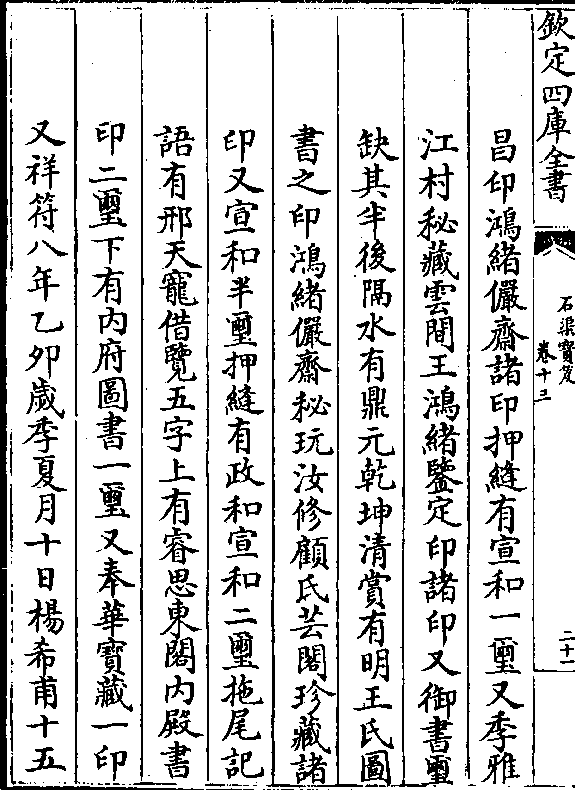 欽定四庫全書
石渠寶笈
卷十三
二十一
昌印鴻緒儼齋諸印押縫有宣和一璽又季雅
江村秘藏雲間王鴻緒鑒定印諸印又御書璽
缺其半後隔水有鼎元乾坤清賞有明王氏圖
書之印鴻緒儼齋秘玩汝修顧氏芸閣珍藏諸
印又宣和半璽押縫有政和宣和二璽拖尾記
語有邢天寵借覽五字上有睿思東閣内殿書
印二璽下有内府圖書一璽又奉華寶藏一印
又祥符八年乙夘嵗季夏月十日楊希甫十五